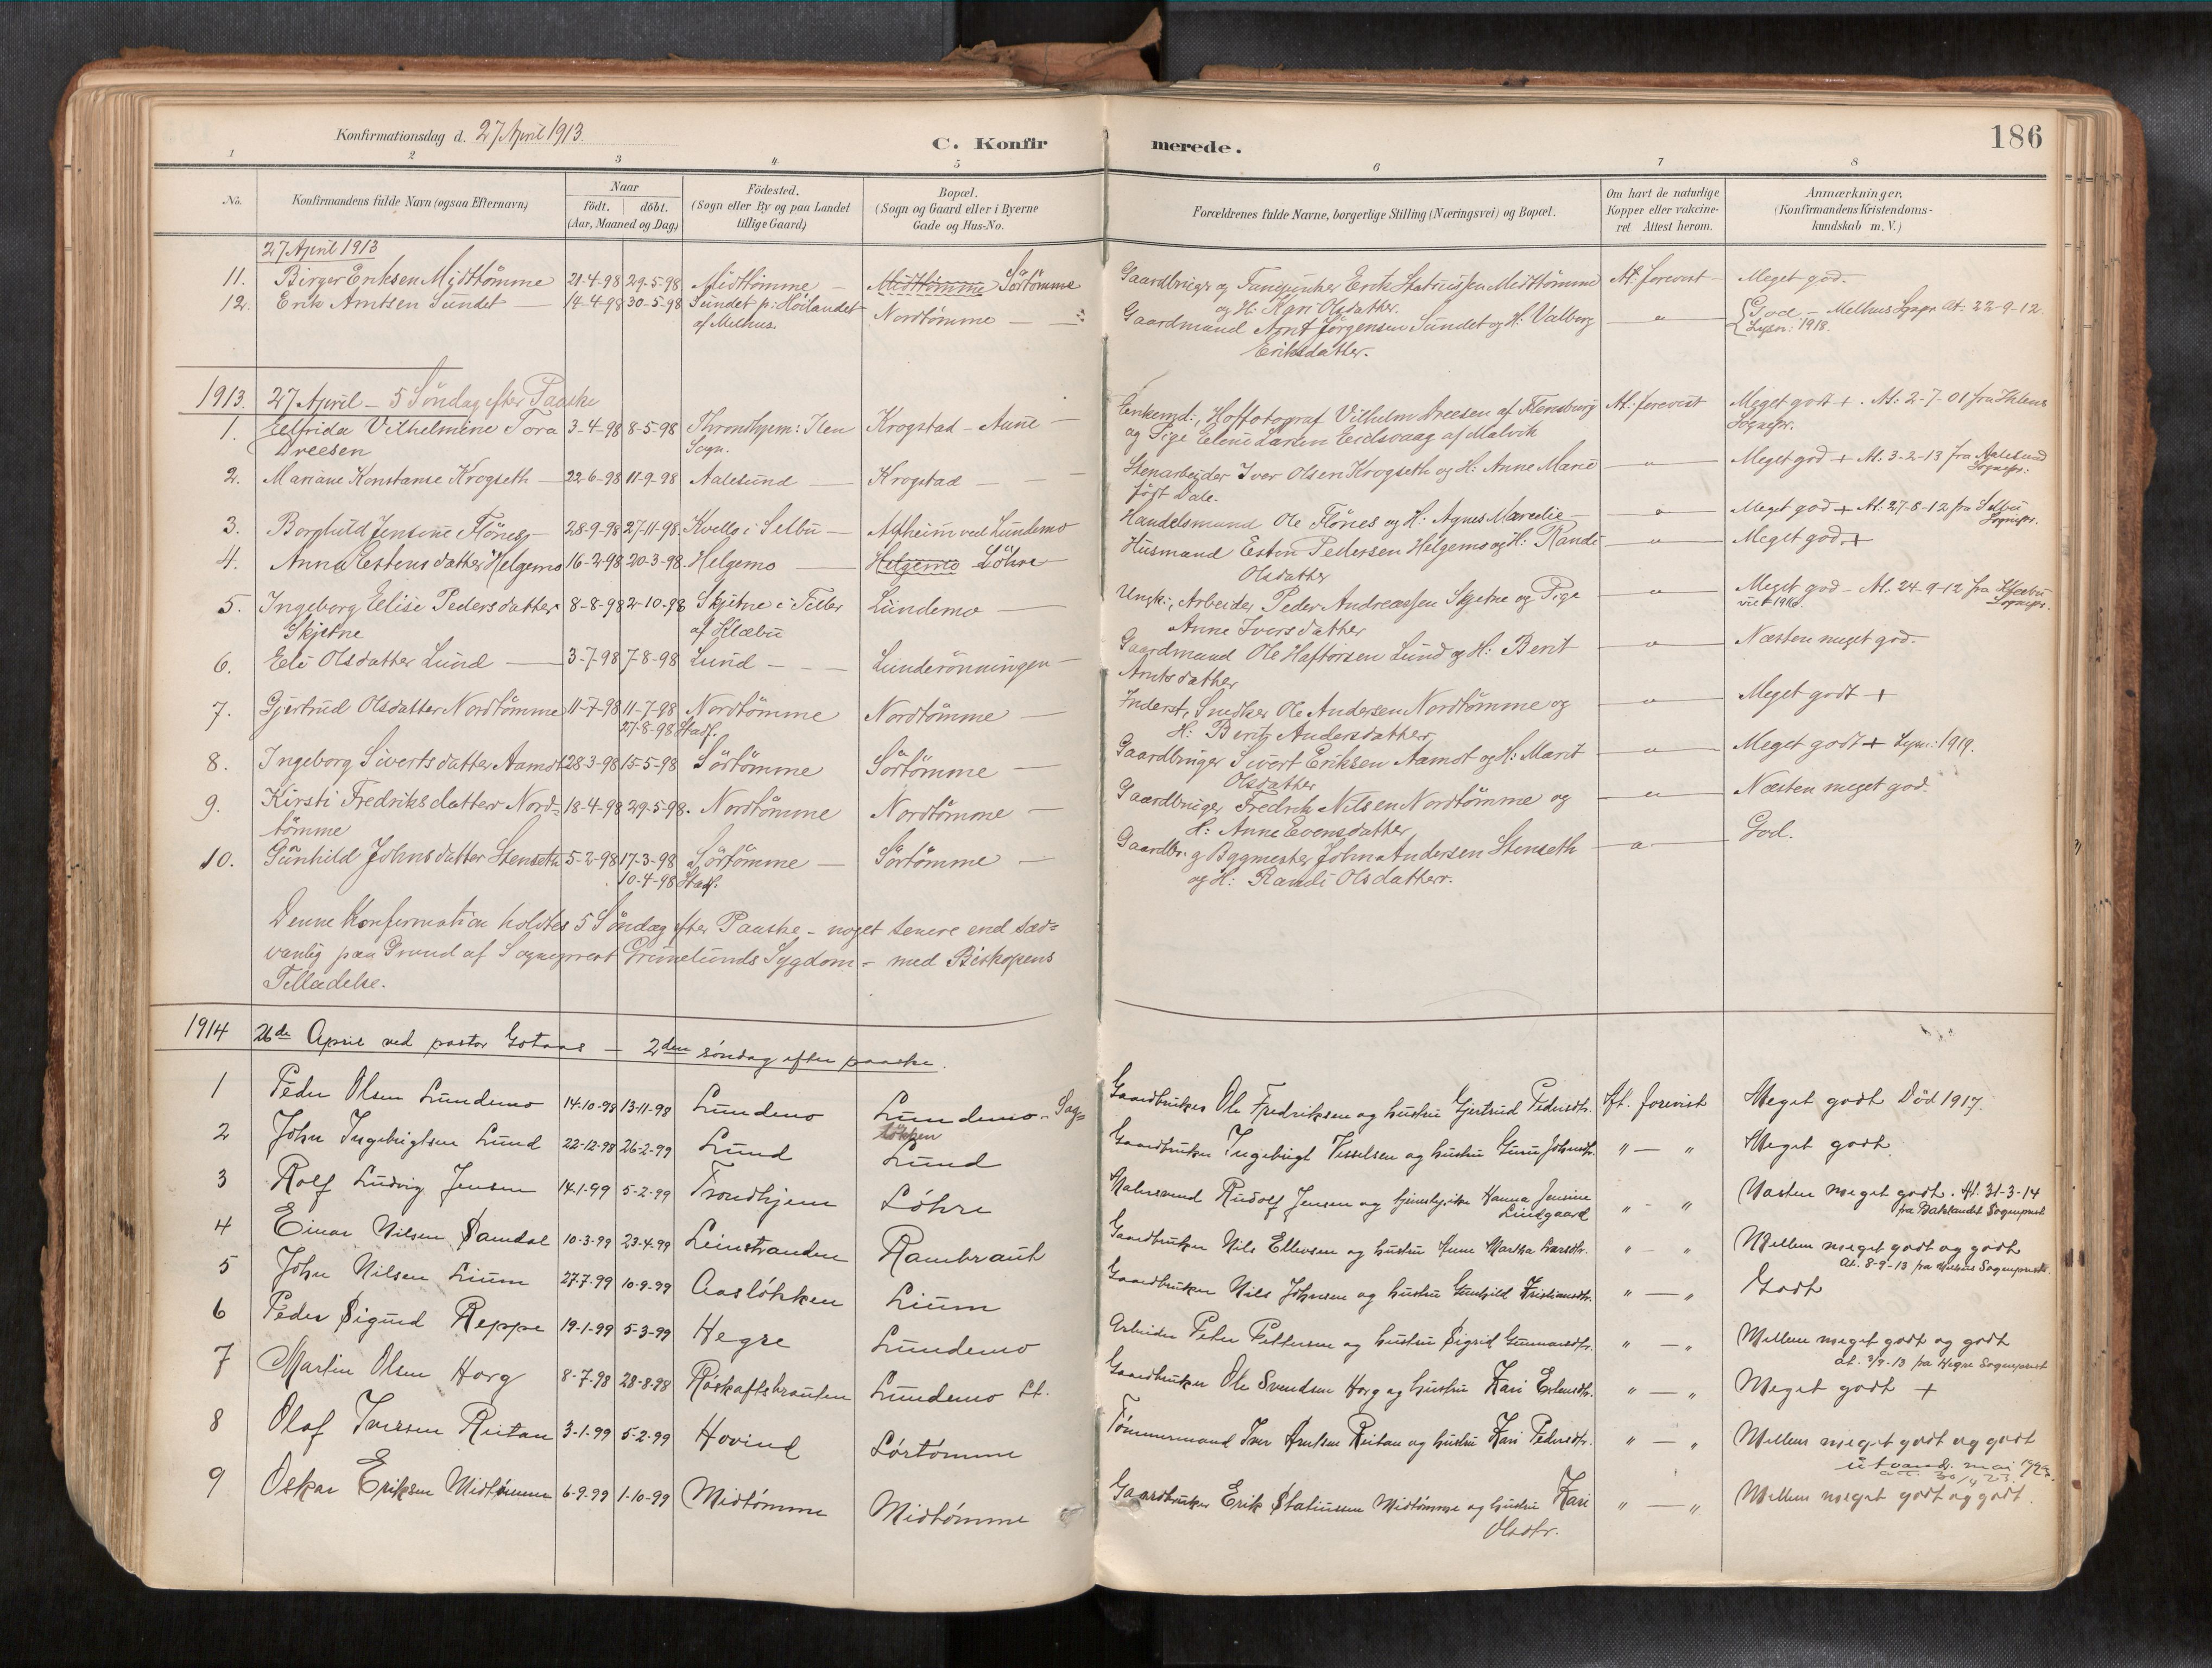 Konfirmationsdag d. 27 April 1913.
C. Konfirmerede.
186
1 2 3 4 5 6 7 8
No. Konfirmandens fulde Navn (ogsaa Efternavn) Naar født. døbt. (Aar, Maaned og Dag) Fødested. (Sogn eller By og paa Landet tillige Gaard) Bopæl. (Sogn og Gaard eller i Byerne Gade og Hus-No. Forældrenes fulde Navne, borgerlige Stilling (Næringsvei) og Bopæl. Om havt de naturlige Kopper eller vakcineret Attest herom. Anmærkninger. (Konfirmandens Kristendomskundskab m. V.)
27 April 1913
11. Birger Eriksen Midttömme 21-4-98 29-5-98 Midttömme – Midttömme Sörtömme Gaardbruger og Erik Statiussen Midttömme At. forevist Meget god.
og H: Kari Olsdatter.
12. Erik Arntsen Sundet 14-4-98 30-5-98 Sundet p: Höilandet Nordtömme Gaardmand Arnt Jörgensen Sundet og H: Valborg – " – God – Melhus Sgpr At: 22-9-12
af Melhus. Eriksdatter. 1918.
1913. 27 April – 5 Söndag efter Paaske
1. Elfrida Vilhelmine Tora 3-4-98 8-5-98 Throndhjem: Ilen Krogstad – Aune Enkemd:, Hoffotograf Vilhelm Dreesen af Flensburg At: forevist Meget godt +. At: 2-7-01 fra Ihlens
Dreesen Sogn. og Pige Eline Larsen Eidsvaag af Malvik Sognepr.
2. Mariane Konstanse Krogseth 22-6-98 11-9-98 Aalesund Krogstad Stenarbeider Iver Olsen Krogseth og H: Anne Marie – " – Meget god + At: 3-2-13 fra Aalesund
født Dale. Sognepr:
3. Borghild Jensine Flönes 28-9-98 27-11-98. Kvello i Selbu Alfheim ved Lundemo Handelsmand Ole Flönes og H: Agnes Maredie – " – Meget god + At: 27-8-12 fra Selbu
Sognepr.
4. Anna Estensdatter Helgemo 16-2-98 20-3-98. Helgemo Helgemo Löhre Husmand Esten Pedersen Helgemo og H: Randi – " – Meget god +
Olsdatter
5. Ingeborg Elise Pedersdatter 8-8-98 2-10-98 Skjetne i Tiller Lundemo Ungk:, Arbeider Peder Andreassen Skjetne og Pige – " – Meget god – At. 24-9-12 fra Klæbu
Skjetne af Klæbu Anne Iversdatter Sognepr.
6. Eli Olsdatter Lund 3-7-98 7-8-98 Lund Lunderönningen Gaardmand Ole Haftorsen Lund og H: Berit – " – Næsten meget god.
Arntsdatter
7. Gjertrud Olsdatter Nordtömme 11-7-98 11-7-98 Nordtömme Nordtömme Inderst, Snedker Ole Andersen Nordtömme og – " – Meget godt +
27-8-98 Stadf. H: Berit Andersdatter
8. Ingeborg Sivertsdatter Aamot 28-3-98 15-5-98 Sörtömme Sörtömme Gaardbruger Sivert Eriksen Aamot og H: Marit – " – Meget godt + 1919.
Olsdatter
9. Kirsti Fredriksdatter Nord- 18-4-98 29-5-98. Nordtömme Nordtömme Gaardbruger Fredrik Nilsen Nordtömme og – " – Næsten meget god.
tömme H: Anne Evensdatter
10. Gunhild Johnsdatter Stenseth 5-2-98 17-3-98 Sörtömme Sörtömme Gaardbr. og Bygmester John Andersen Stenseth – " – God.
10-4-98 Stadf. og H: Randi Olsdatter.
Denne Konfirmation holdtes 5 Söndag efter Paaske – noget senere end sæd=
vanlig paa Grund af Sogneprest Grünelunds Sygdom – med Biskopens
Tilladelse.
1914 26de April ved pastor Gotaas – 2den søndag efter paaske.
1 Peder Olsen Lundemo 14-10-98 13-11-98 Lundemo Lundemo Gaardbruker Ole Fredriksen og hustru Gjertrud Pedersdtr. At. forevist Meget godt Död 1917.
2 John Ingebrigtsen Lund 22-12-98 26-2-99 Lund Lund Gaardbruker Ingebrigt Vesselsen og hustru Guru Johnsdtr. " – " Meget godt
3 Rolf Ludvig Jensen 14-1-99 5-2-99 Trondhjem Löhre Rudolf Jensen og Hanna Jensine " – " Næsten meget godt. At. 31-3-14
Lindgaard fra Baklandet Sogneprest
4 Einar Nilsen Samdal 10-3-99 23-4-99 Leinstranden Rambraut Gaardbruker Nils Ellevsen og hustru Anne Martha Larsdtr. " – " Mellem meget godt og godt
At. 8-9-13 fra Melhus Sogneprest
5 John Nilsen Lium 27-7-99 10-9-99 Aasløkken Lium Gaardbruker Nils Johnsen og hustru Gunhild Kristiansdtr. " – " Godt
6 Peder Sigurd Reppe 19-1-99 5-3-99 Hegre Lundemo Arbeider Peter Pettersen og hustru Sigrid Gunnarsdtr. " – " Mellem meget godt og godt
At. 9/9-13 fra Hegre Sogneprest
7 Martin Olsen Horg 8-7-98 28-8-98 Røskaftbrauten Lundemo St. Gaardbruker Ole Svendsen Horg og hustru Kari Erlendsdtr. " – " Meget godt +
8 Olaf Iversen Reitan 3-1-99 5-2-99 Hovind Sørtømme Tømmermand Iver Arntsen Reitan og hustru Kari Pedersdtr. " – " Mellem meget godt og godt
utvand. mai 1923.
9 Oskar Eriksen Midtømme 6-9-99 1-10-99 Midtømme Midtømme Gaardbruker Erik Statiussen Midtømme og hustru Kari " – " Mellem meget godt og godt.
Olsdtr.